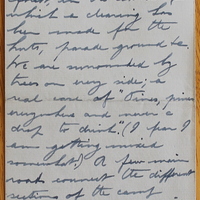 which a clearing has
been made for the
huts, parade ground &c.
We are surrounded by
trees on every side; a
real case of "Pines, pines
everywhere and never a
drop to drink". (I fear I
am getting mixed
somewhat) A few main
roads connect the different
sections of the camp